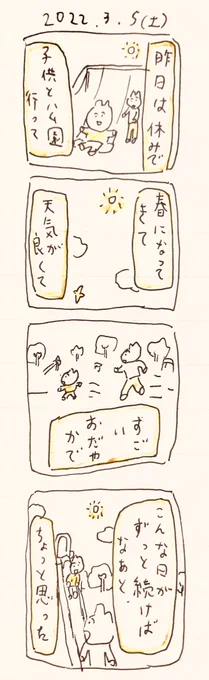 2022.3.5(土)
昨日は休みで
子供と公園
行って
春になって
きて
天気が
良くて
すご
い
おだや
かで
こんな日が
ずっと続けば
なあと、
ちょっと思った